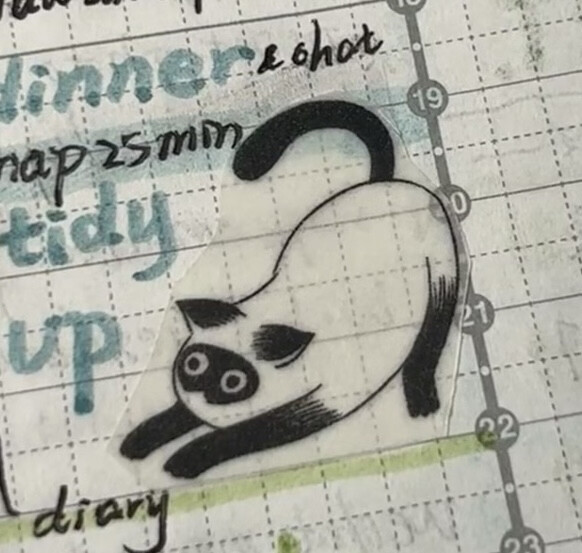 dinner & chat
19
nap 25 min
tidy
20
up
21
22
diary
23